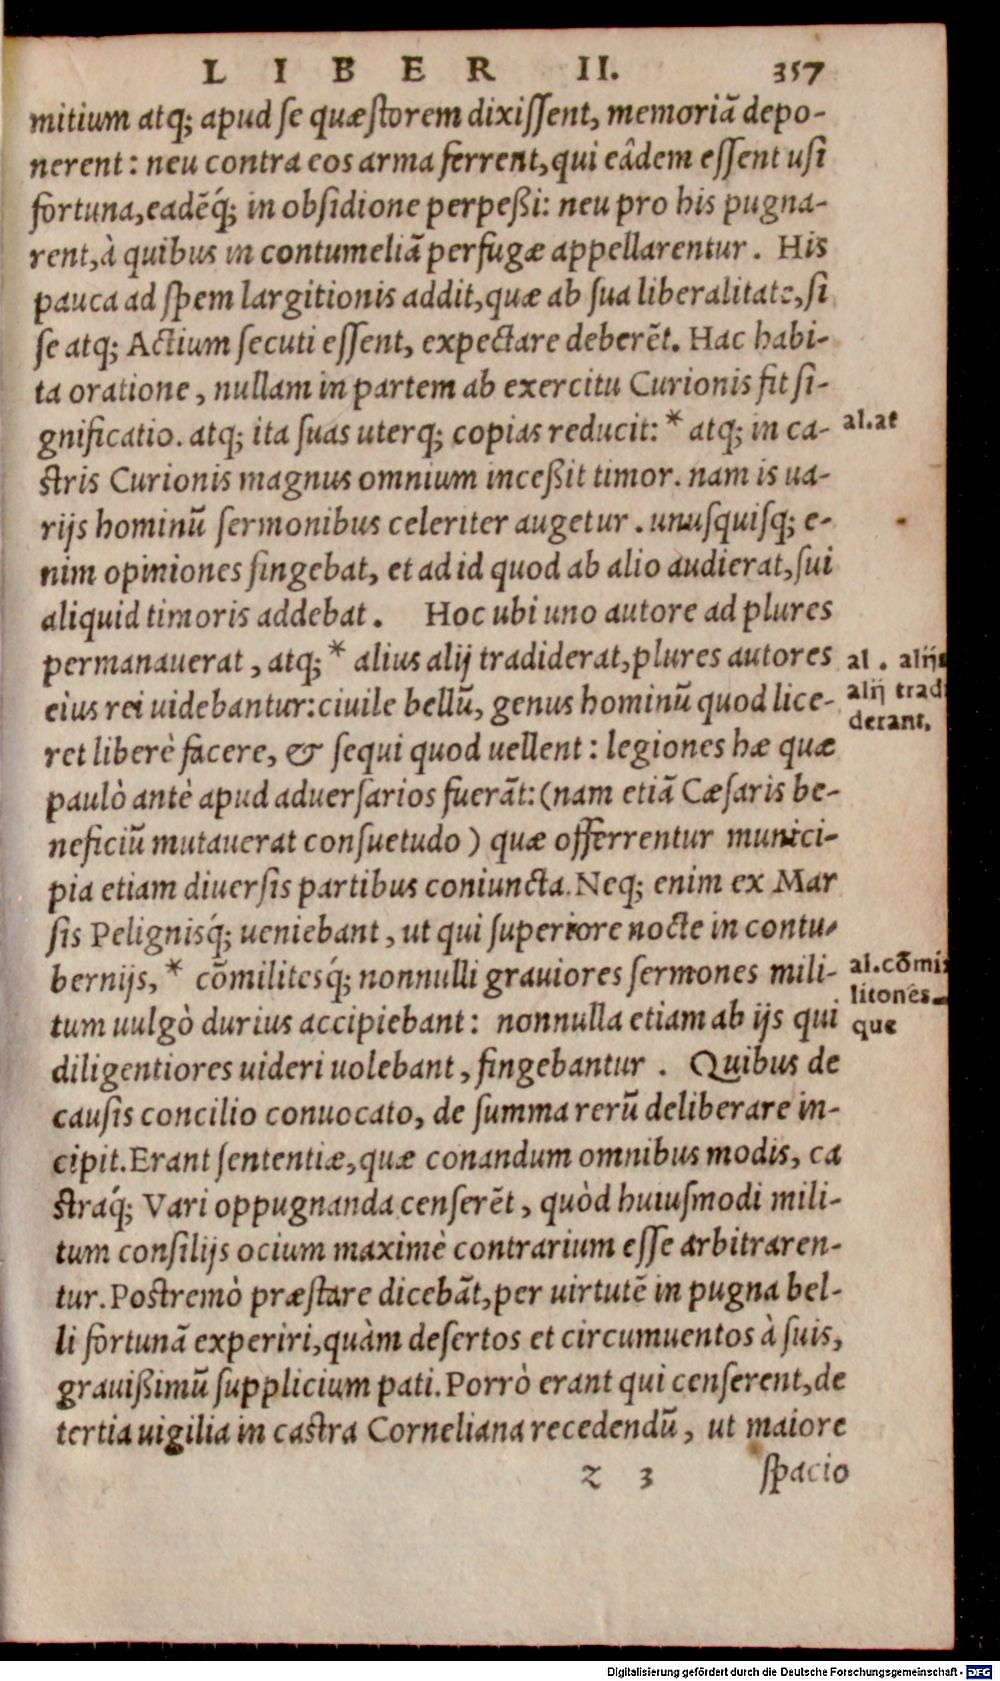 LIBER II. 357
mitium atq; apud se quæstorem dixissent, memoriā depo-
nerent: neu contra eos arma ferrent, qui eâdem essent usi
fortuna, eadēq́; in obsidione perpeßi: neu pro his pugna-
rent, à quibus in contumeliā perfugæ appellarentur. His
pauca ad spem largitionis addit, quæ ab sua liberalitate, si
se atq; Actium secuti essent, expectare deberēt. Hac habi-
ta oratione, nullam in partem ab exercitu Curionis fit si-
gnificatio. atq; ita suas uterq; copias reducit: * atq; in ca-
al.at
stris Curionis magnus omnium inceßit timor. nam is ua-
rijs hominū sermonibus celeriter augetur. unusquisq; e-
nim opiniones fingebat, et ad id quod ab alio audierat, sui
aliquid timoris addebat. Hoc ubi uno autore ad plures
permanauerat, atq; * alius alij tradiderat, plures autores
al. alijs
alij trad
derant.
eius rei uidebantur: ciuile bellū, genus hominū quod lice-
ret liberè facere, & sequi quod uellent: legiones hæ quæ
paulò antè apud aduersarios fuerāt: (nam etiā Cæsaris be-
neficiū mutauerat consuetudo) quæ offerrentur munici-
pia etiam diuersis partibus coniuncta. Neq; enim ex Mar
sis Pelignisq́; ueniebant, ut qui superiore nocte in contu-
bernijs, * cōmilitesq́; nonnulli grauiores sermones mili-
al.cōmi
litones-
que
tum uulgò durius accipiebant: nonnulla etiam ab ijs qui
diligentiores uideri uolebant, fingebantur. Quibus de
causis concilio conuocato, de summa rerū deliberare in-
cipit. Erant sententiæ, quæ conandum omnibus modis, ca
straq́; Vari oppugnanda censerēt, quòd huiusmodi mili-
tum consilijs ocium maximè contrarium esse arbitraren-
tur. Postremò præstare dicebāt, per uirtutē in pugna bel-
li fortunā experiri, quàm desertos et circumuentos à suis,
grauißimū supplicium pati. Porrò erant qui censerent, de
tertia uigilia in castra Corneliana recedendū, ut maiore
z 3 spacio
Digitalisierung gefördert durch die Deutsche Forschungsgemeinschaft - DFG